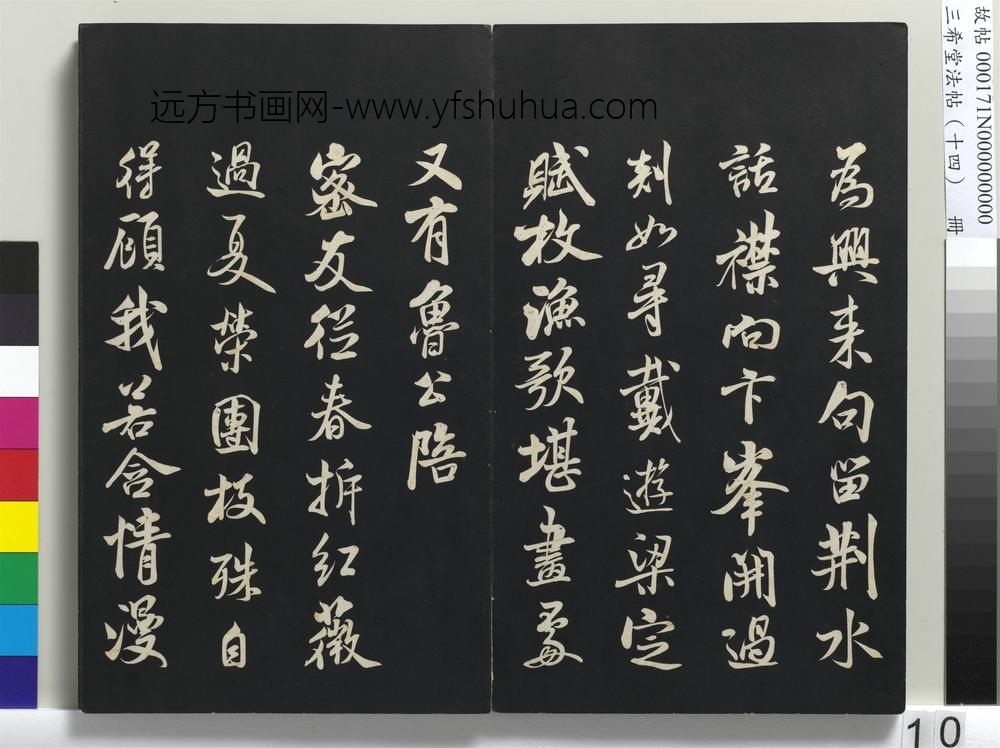 故帖 000171N000000000
三希堂法帖（十四） 冊
远方书画网-www.yfshuhua.com
為興来句留荆水
話襟向卞峯開過
剡如尋戴遊梁定
賦枚漁歌堪畫處
又有魯公陪
密友從春拆紅薇
過夏榮團枝殊自
得顧我若含情漫
10